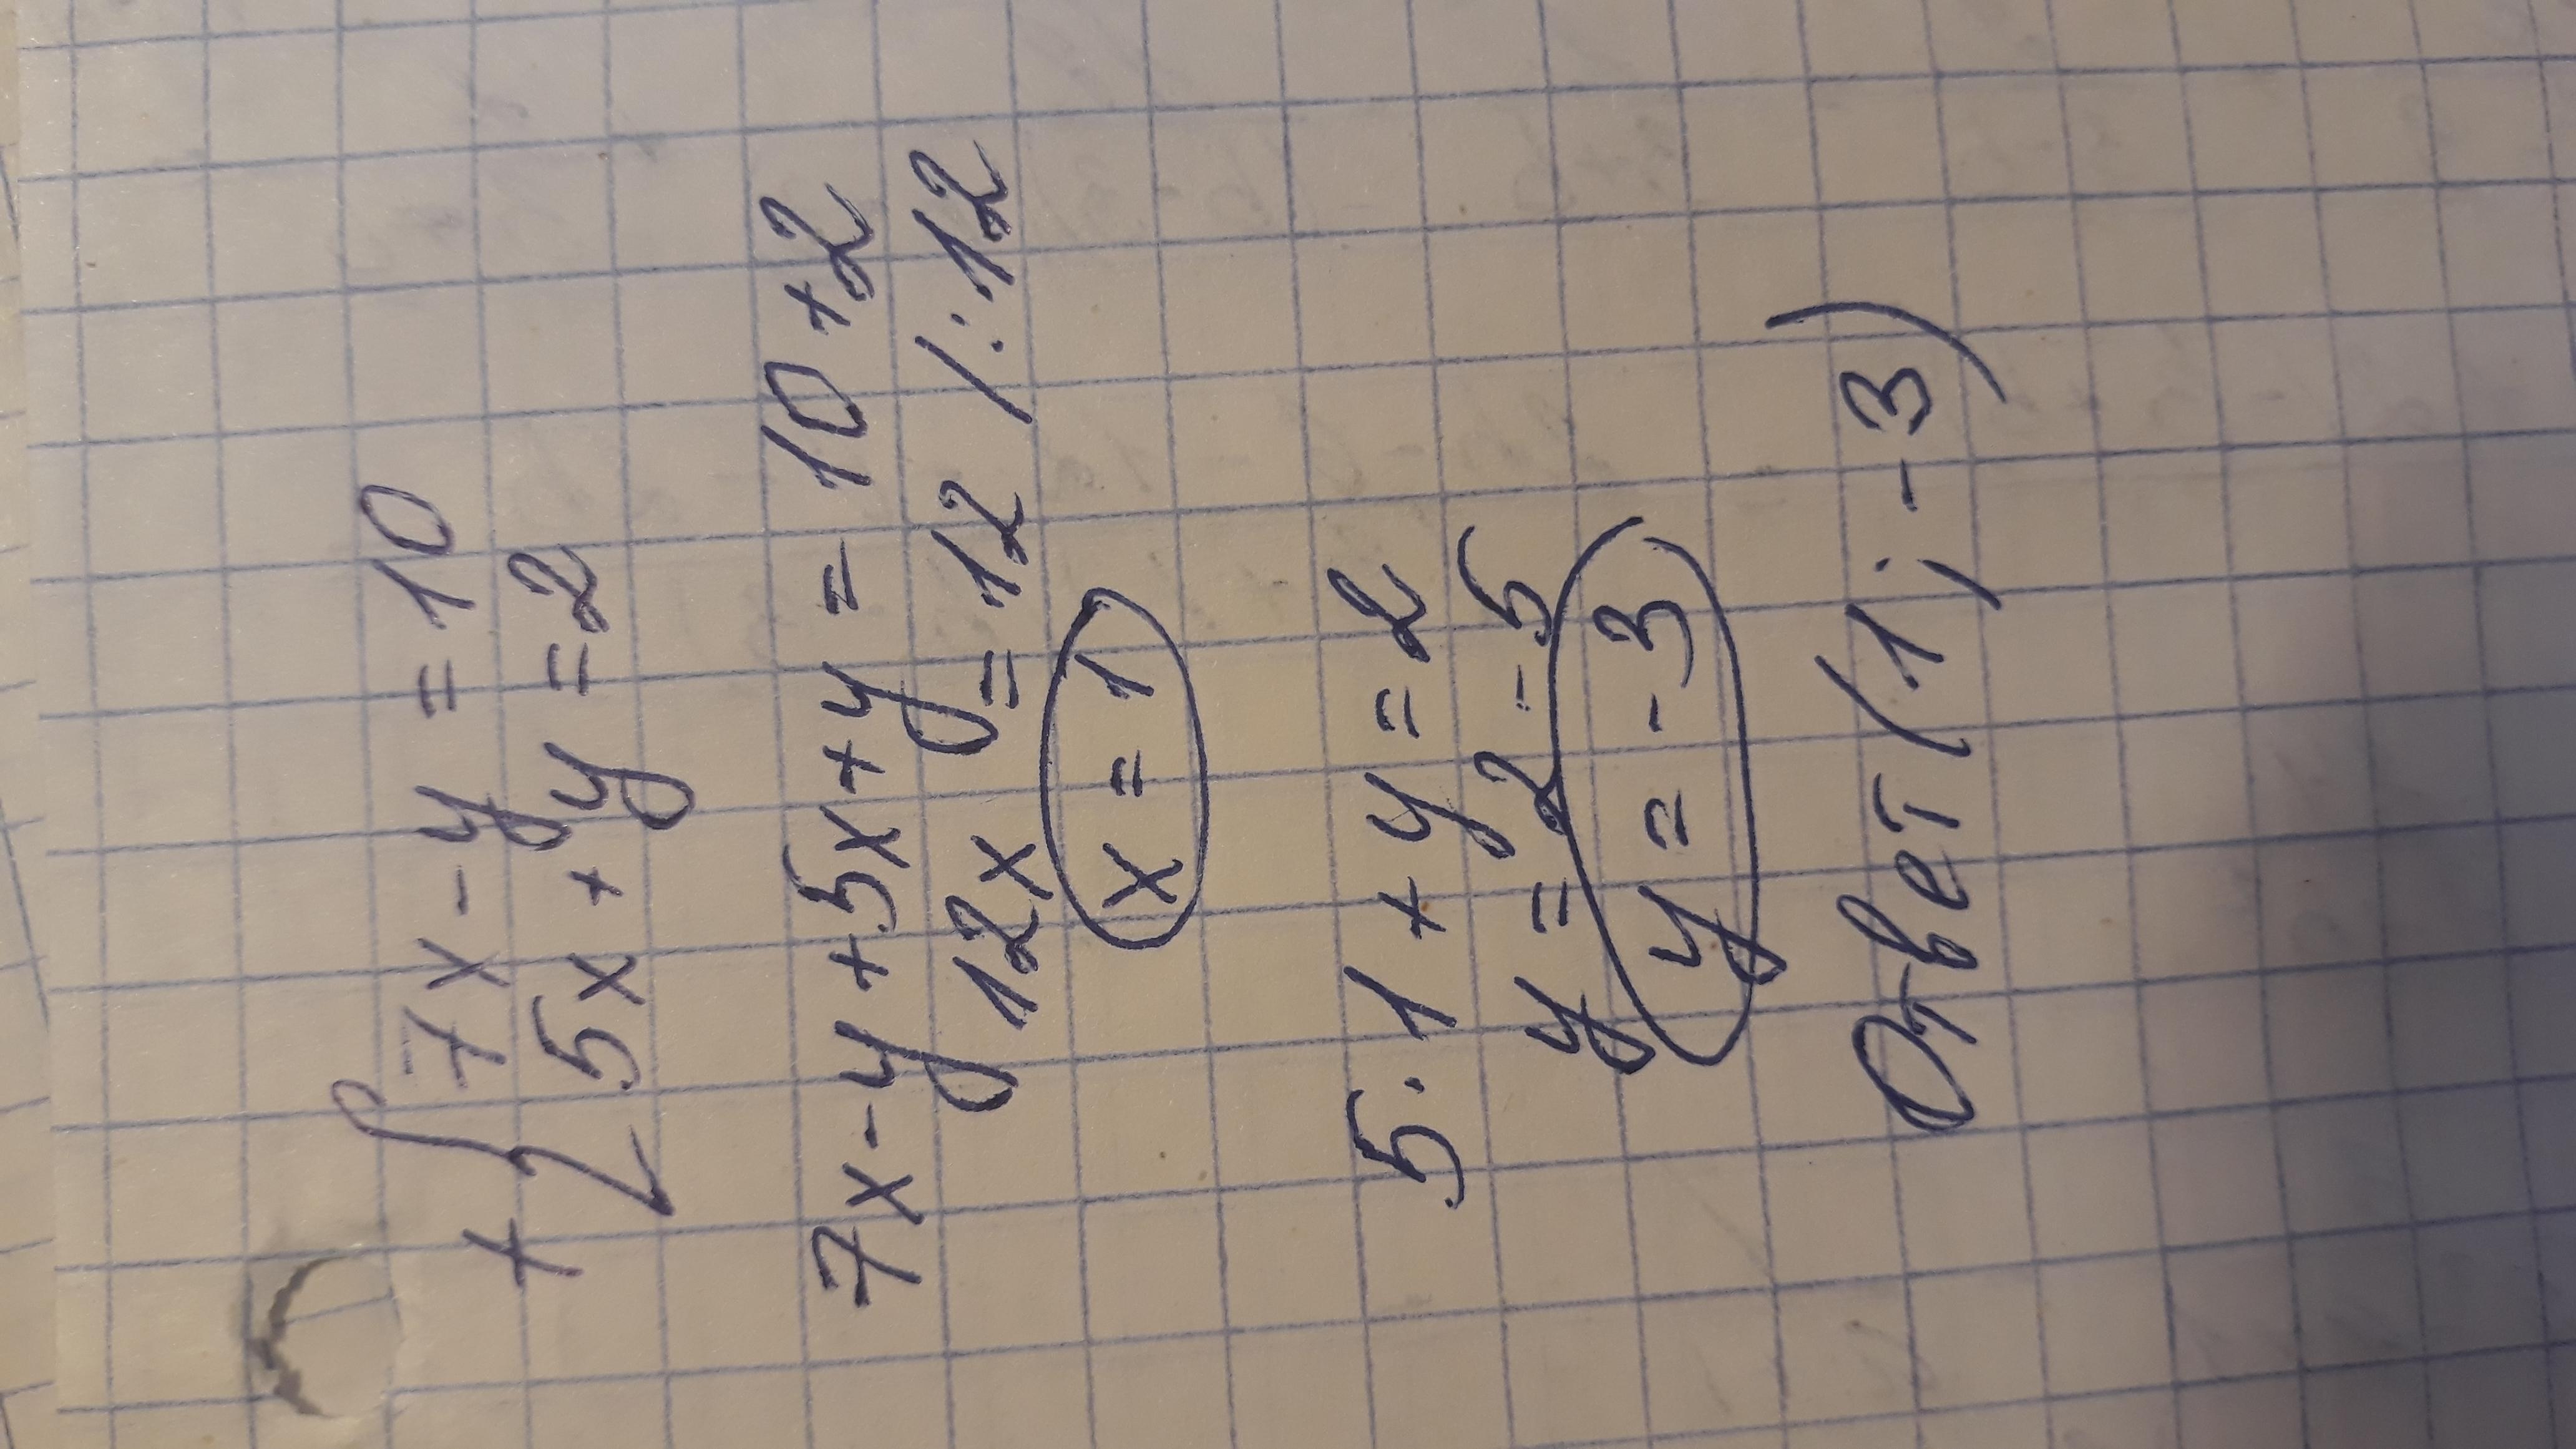 +{ 7x - y = 10
5x + y = 2
7x - y + 5x + y = 10 + 2
12x = 12 /:12
x = 1
5·1 + y = 2
y = 2 - 5
y = -3
Ответ (1; -3)